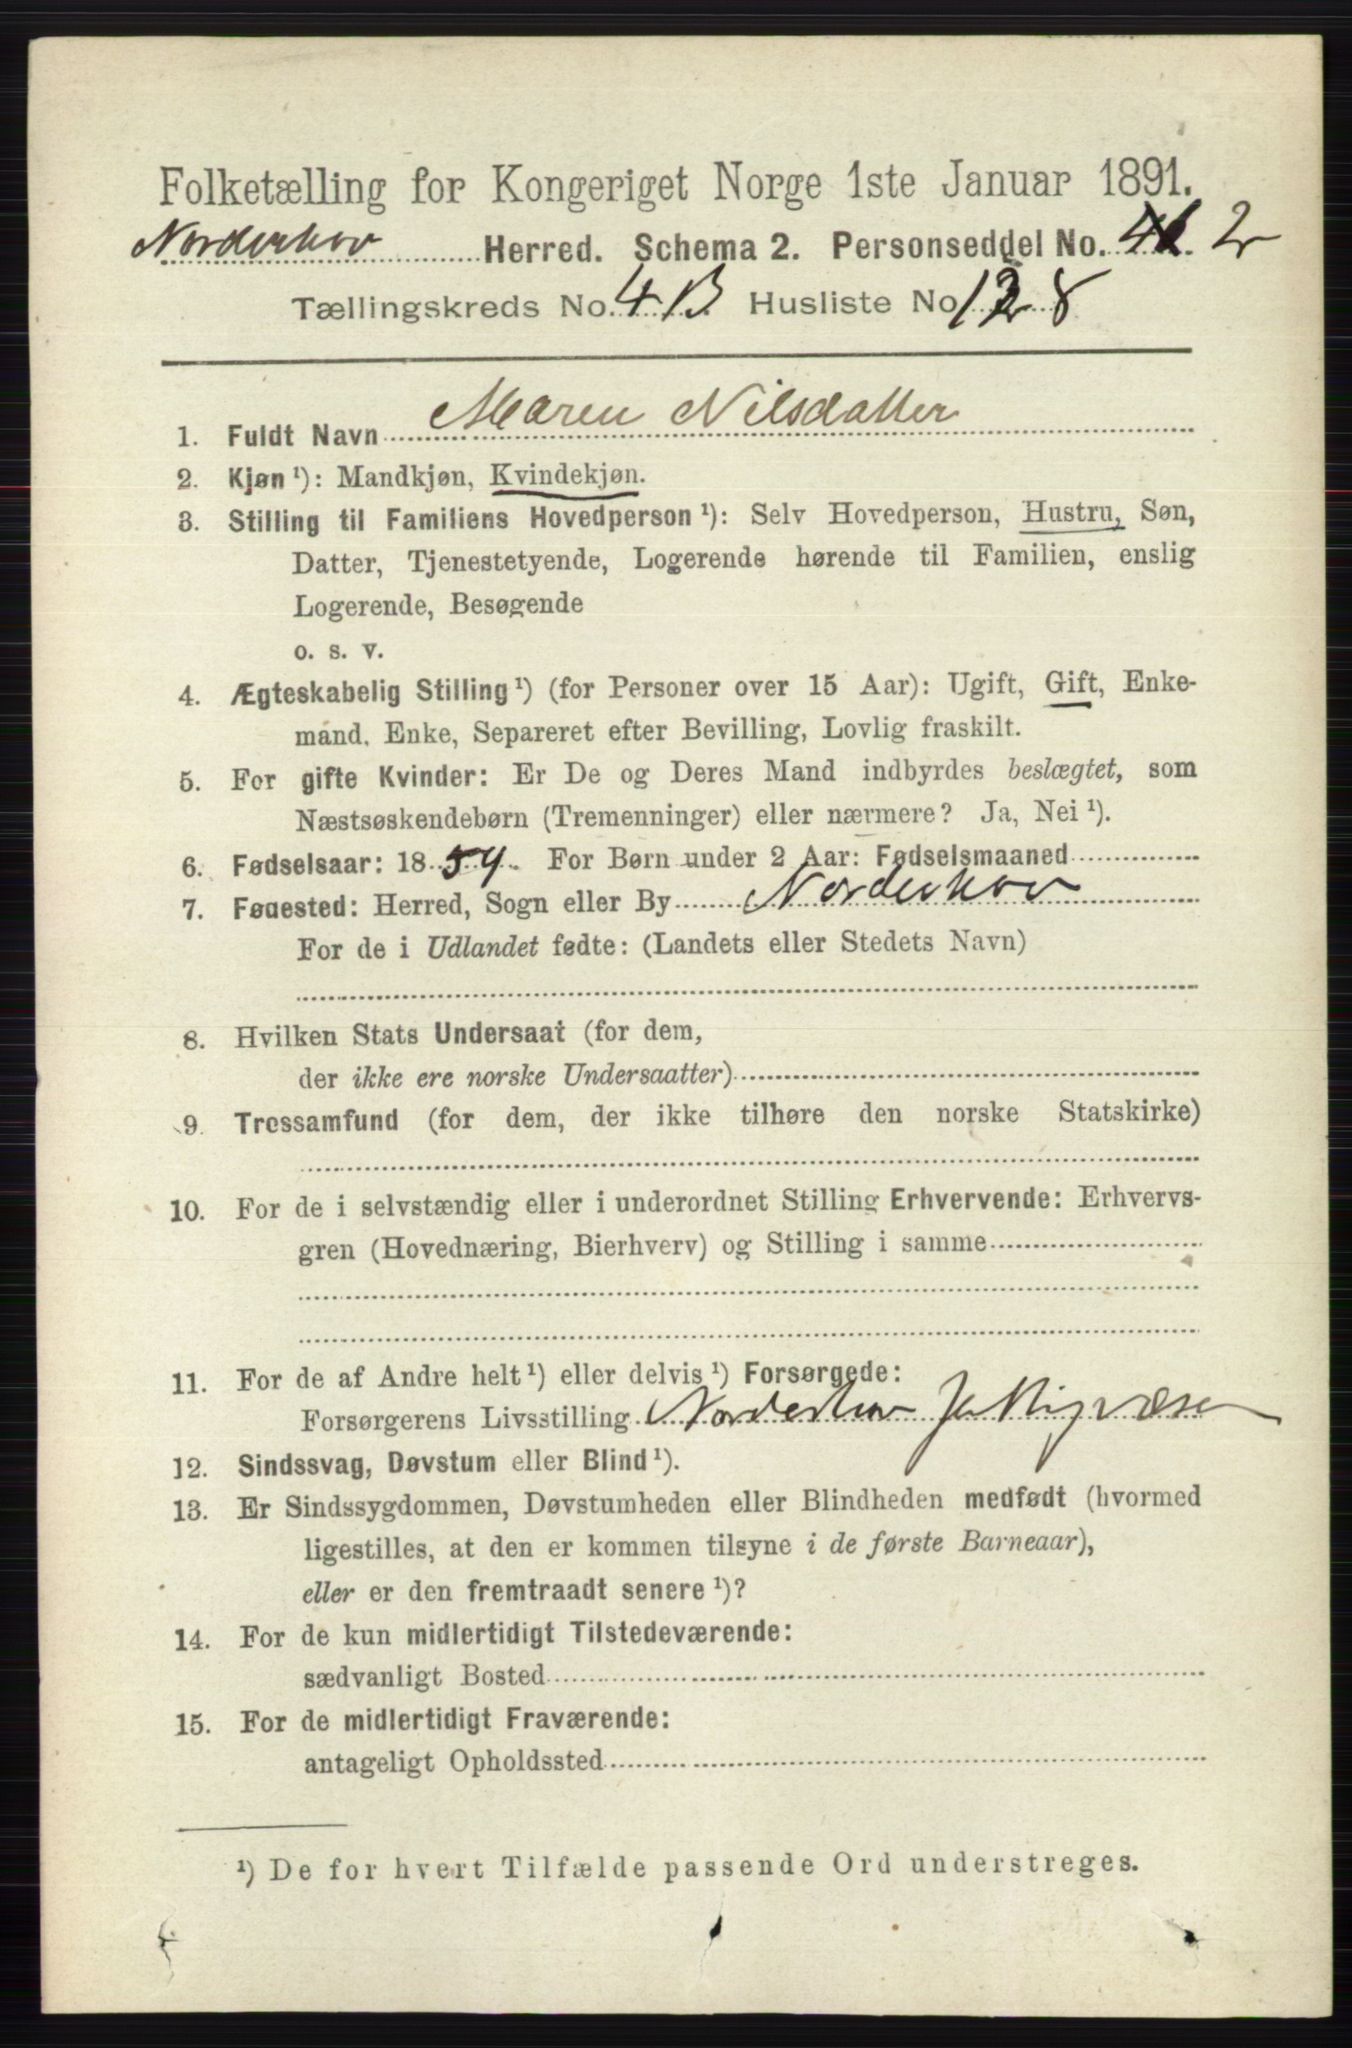 Folketælling for Kongeriget Norge 1ste Januar 1891.
Norderhov Herred. Schema 2. Personseddel No. 2
Tællingskreds No. 4B Husliste No 128
1. Fuldt Navn Maren Nilsdatter
2. Kjøn ¹): Mandkjøn, Kvindekjøn.
3. Stilling til Familiens Hovedperson ¹): Selv Hovedperson, Hustru, Søn,
Datter, Tjenestetyende, Logerende hørende til Familien, enslig
Logerende, Besøgende
o. s. v.
4. Ægteskabelig Stilling ¹) (for Personer over 15 Aar): Ugift, Gift, Enke-
mand, Enke, Separeret efter Bevilling, Lovlig fraskilt.
5. For gifte Kvinder: Er De og Deres Mand indbyrdes beslægtet, som
Næstsøskendebørn (Tremenninger) eller nærmere? Ja, Nei ¹).
6. Fødselsaar: 1854. For Børn under 2 Aar: Fødselsmaaned
7. Fødested: Herred, Sogn eller By Norderhov
For de i Udlandet fødte: (Landets eller Stedets Navn)
8. Hvilken Stats Undersaat (for dem,
der ikke ere norske Undersaatter)
9. Trossamfund (for dem, der ikke tilhøre den norske Statskirke)
10. For de i selvstændig eller i underordnet Stilling Erhvervende: Erhvervs-
gren (Hovednæring, Bierhverv) og Stilling i samme
11. For de af Andre helt ¹) eller delvis ¹) Forsørgede:
Forsørgerens Livsstilling Norderhov Fattigvæsen
12. Sindssvag, Døvstum eller Blind ¹).
13. Er Sindssygdommen, Døvstumheden eller Blindheden medfødt (hvormed
ligestilles, at den er kommen tilsyne i de første Barneaar),
eller er den fremtraadt senere ¹)?
14. For de kun midlertidigt Tilstedeværende:
sædvanligt Bosted
15. For de midlertidigt Fraværende:
antageligt Opholdssted
¹) De for hvert Tilfælde passende Ord understreges.